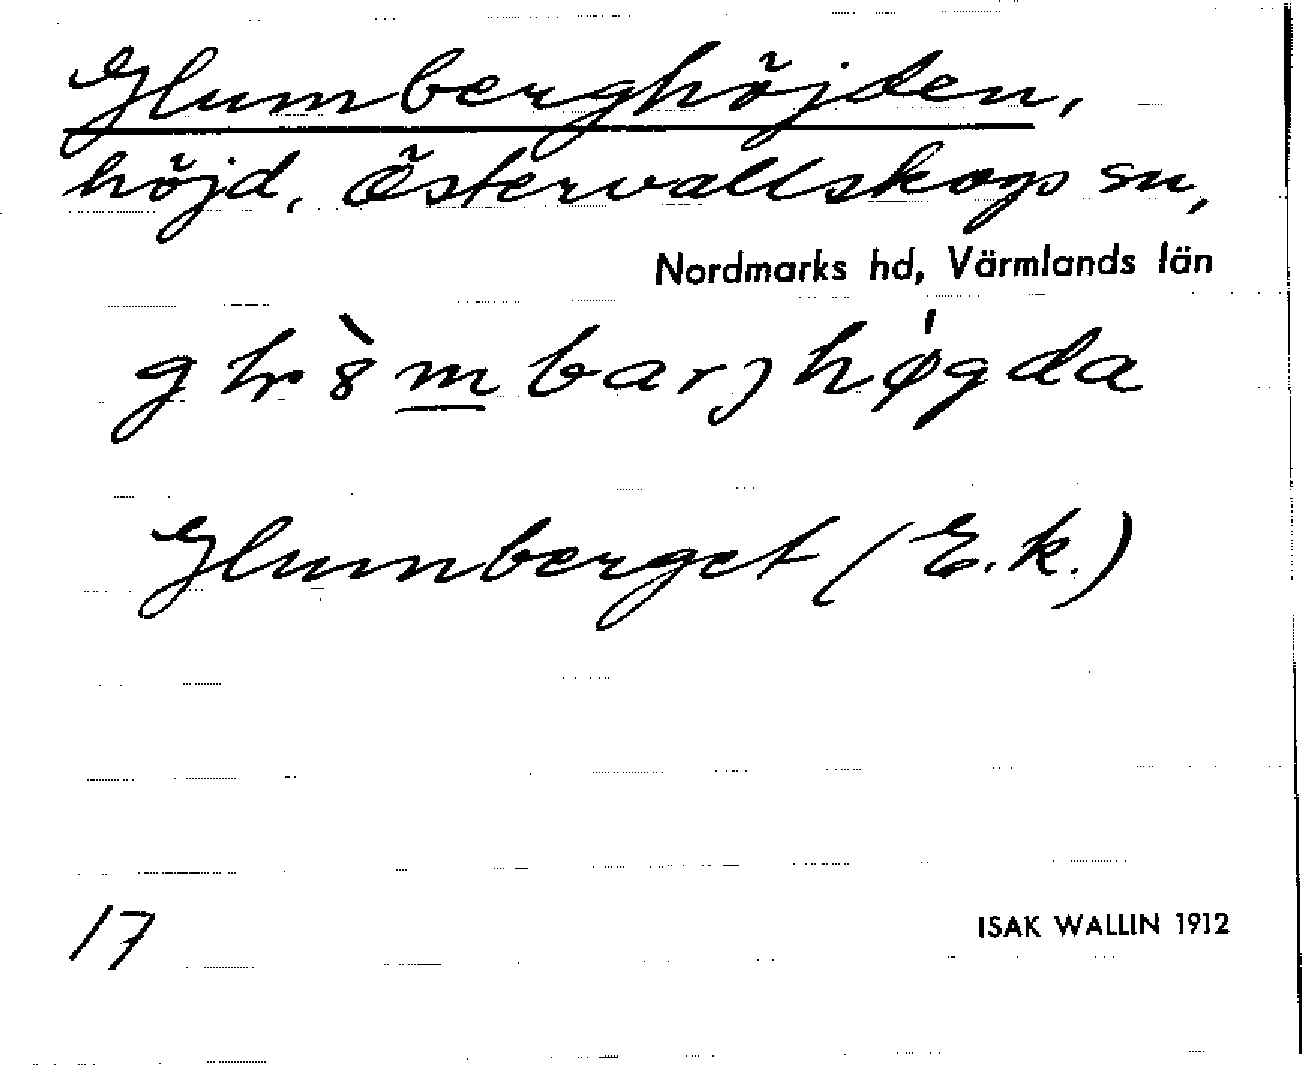 Glumberghöjden,
höjd, Östervallskogs sn,
Nordmarks hd, Värmlands län
Glumberget (E.k.)
17
ISAK WALLIN 1912